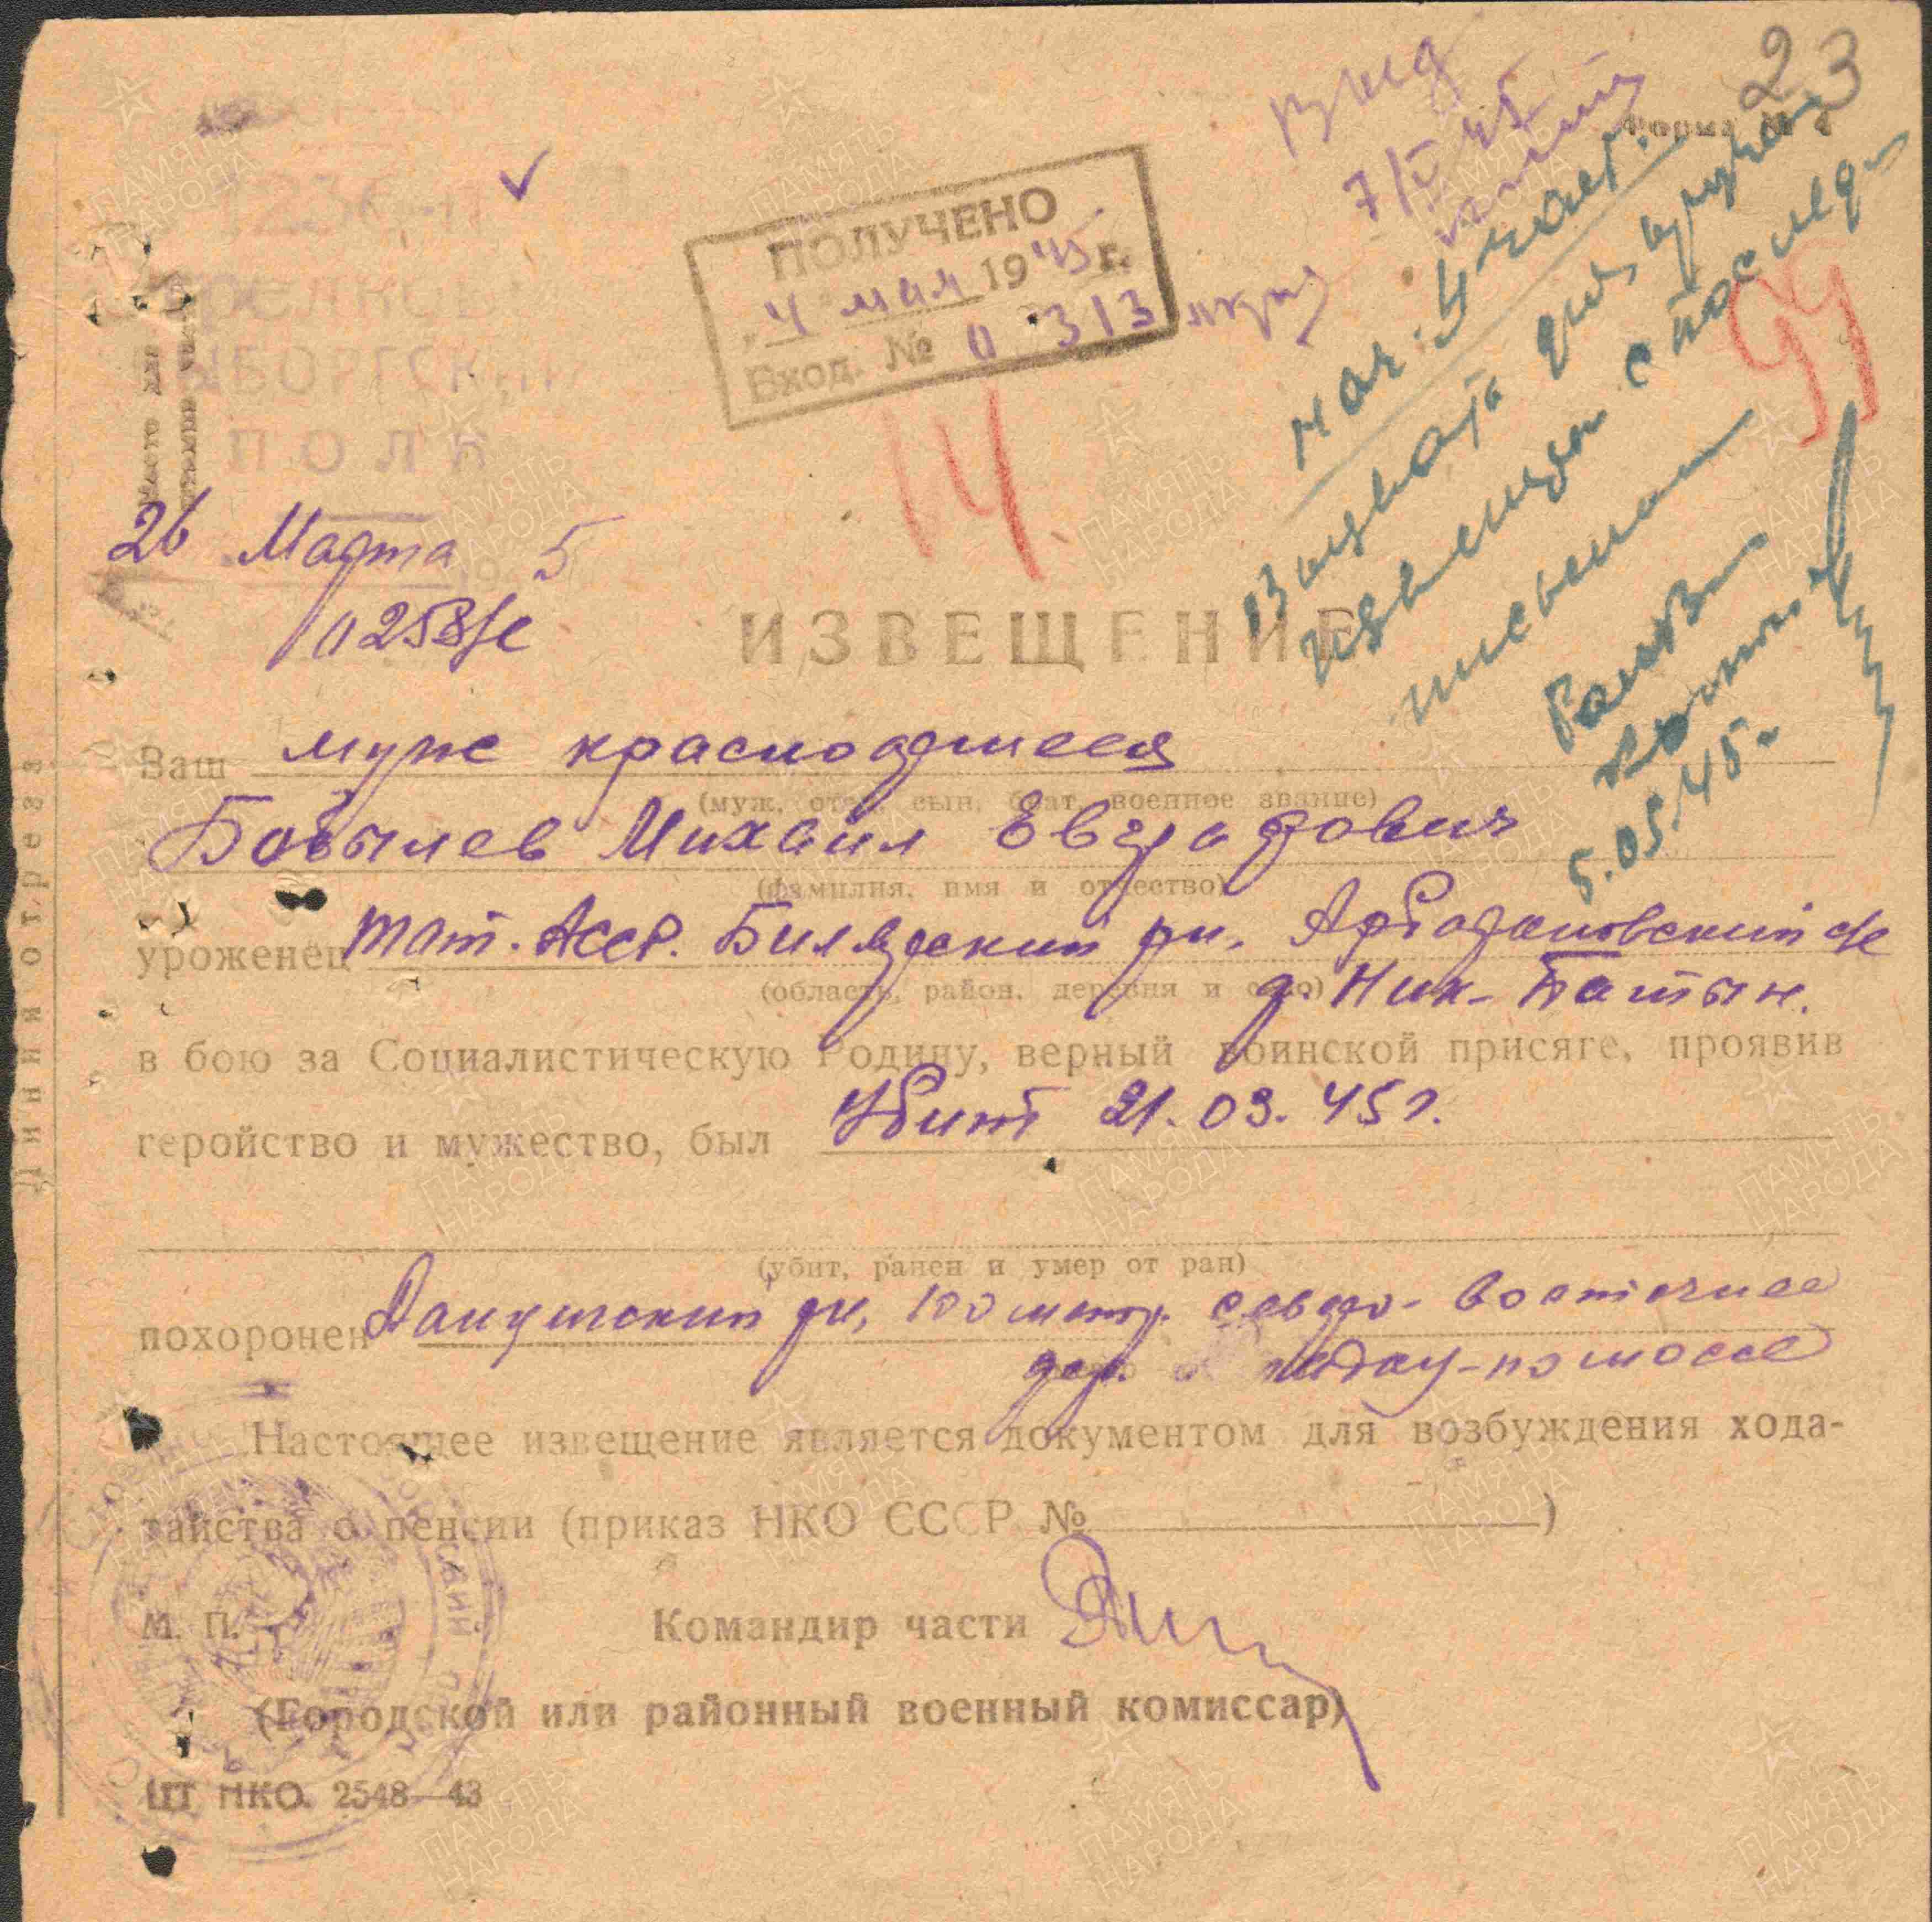 23
Форма № 4
7/V 45
1236-й
СТРЕЛКОВЫЙ
ВЫБОРГСКИЙ
ПОЛК
ПОЛУЧЕНО
"4" мая 1945 г.
Вход. № 0313
14
99
26 Марта 1945
нач. 4 част.
извещения с послед.
письмом
5.05.45.
ИЗВЕЩЕНИЕ
Ваш муж красноармеец
(муж, отец, сын, брат, военное звание)
Бобылев Михаил Евграфович
(фамилия, имя и отчество)
уроженец Тат. АССР. Билярский рн.
(область, район, деревня и село) д. Ник-Батын.
в бою за Социалистическую Родину, верный воинской присяге, проявив
геройство и мужество, был Убит 21.03.45 г.
(убит, ранен и умер от ран)
похоронен рн, 100 метр. северо-восточнее
дер.
Настоящее извещение является документом для возбуждения хода-
тайства о пенсии (приказ НКО СССР № )
М. П. Командир части
(Городской или районный военный комиссар)
ЦТ НКО. 2548—43
Линия отреза
ПАМЯТЬ НАРОДА